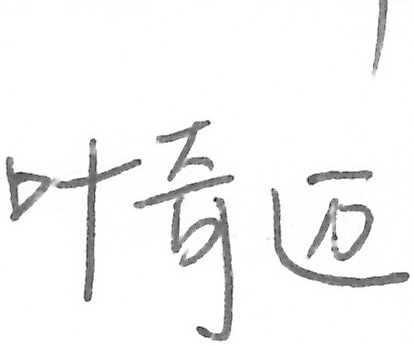 叶奇迈